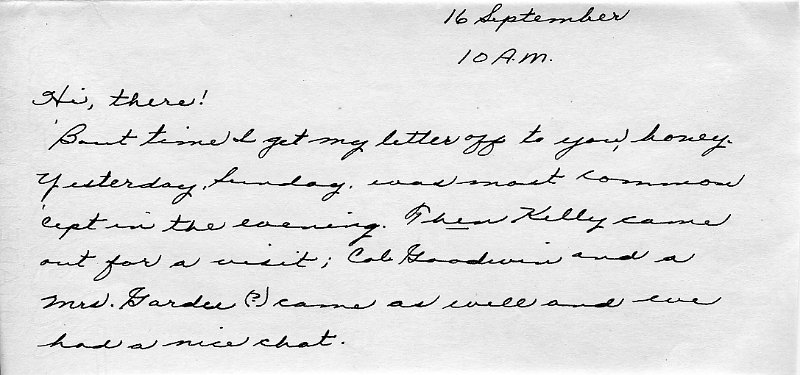 16 September
10 A.M.
Hi, there!
'Bout time I get my letter off to you, honey.
Yesterday, Sunday, was most common
'cept in the evening. Then Kelly came
out for a visit; Col. Goodwin and a
Mrs. Gardee (?) came as well and we
had a nice chat.